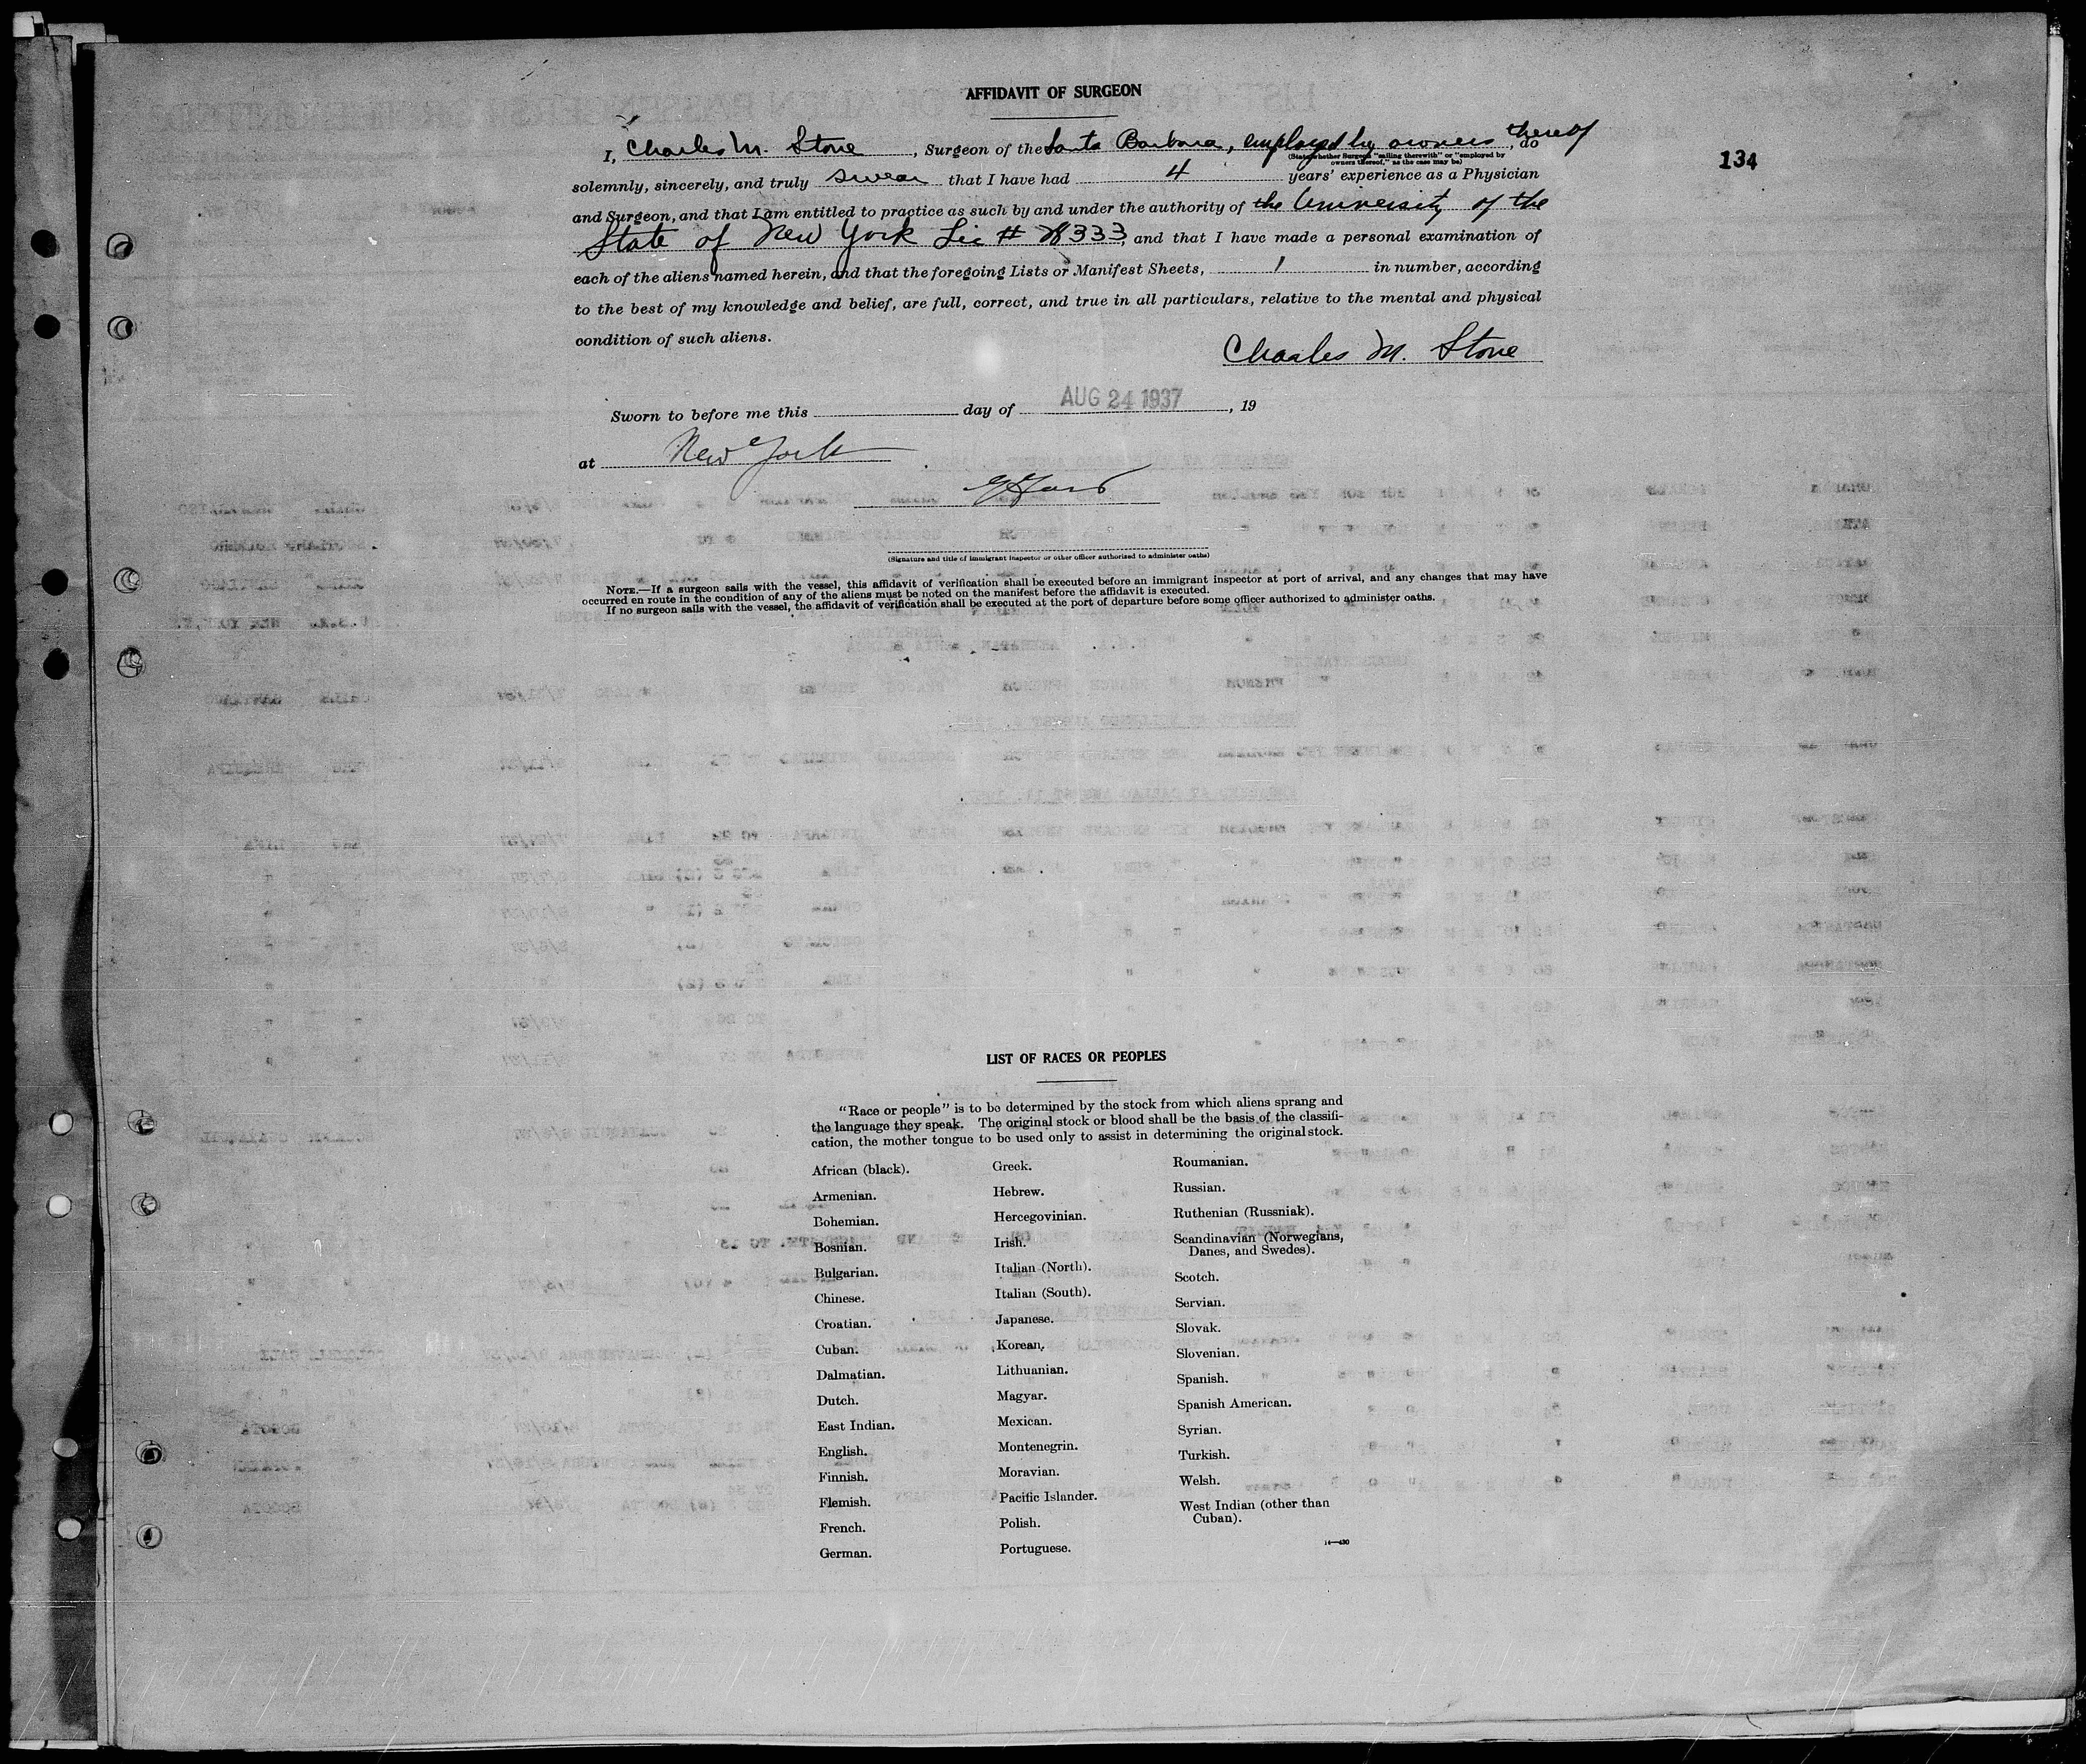 AFFIDAVIT OF SURGEON
I, Charles M. Stone, Surgeon of the Santa Barbara, employed by owners thereof, do
(State whether Surgeon "sailing therewith" or "employed by
owners thereof," as the case may be)
134
solemnly, sincerely, and truly swear that I have had 4 years' experience as a Physician
and Surgeon, and that I am entitled to practice as such by and under the authority of the University of the
State of New York Lic # 28333, and that I have made a personal examination of
each of the aliens named herein, and that the foregoing Lists or Manifest Sheets, 1 in number, according
to the best of my knowledge and belief, are full, correct, and true in all particulars, relative to the mental and physical
condition of such aliens.
Charles M. Stone
Sworn to before me this day of AUG 24 1937, 19
at New York
(Signature and title of immigrant inspector or other officer authorized to administer oaths)
NOTE.—If a surgeon sails with the vessel, this affidavit of verification shall be executed before an immigrant inspector at port of arrival, and any changes that may have
occurred en route in the condition of any of the aliens must be noted on the manifest before the affidavit is executed.
If no surgeon sails with the vessel, the affidavit of verification shall be executed at the port of departure before some officer authorized to administer oaths.
LIST OF RACES OR PEOPLES
"Race or people" is to be determined by the stock from which aliens sprang and
the language they speak. The original stock or blood shall be the basis of the classifi-
cation, the mother tongue to be used only to assist in determining the original stock.
African (black).
Armenian.
Bohemian.
Bosnian.
Bulgarian.
Chinese.
Croatian.
Cuban.
Dalmatian.
Dutch.
East Indian.
English.
Finnish.
Flemish.
French.
German.
Greek.
Hebrew.
Hercegovinian.
Irish.
Italian (North).
Italian (South).
Japanese.
Korean.
Lithuanian.
Magyar.
Mexican.
Montenegrin.
Moravian.
Pacific Islander.
Polish.
Portuguese.
Roumanian.
Russian.
Ruthenian (Russniak).
Scandinavian (Norwegians,
Danes, and Swedes).
Scotch.
Servian.
Slovak.
Slovenian.
Spanish.
Spanish American.
Syrian.
Turkish.
Welsh.
West Indian (other than
Cuban).
14—430